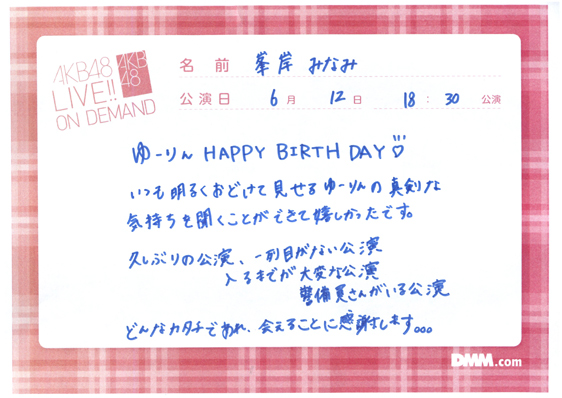 AKB48
LIVE!!
ON DEMAND
AKB
48
名前 峯岸 みなみ
公演日 6月 12日 18:30 公演
ゆーりん HAPPY BIRTH DAY♡
いつも明るくおどけて見せるゆーりんの真剣な
気持ちを聞くことができて嬉しかったです。
久しぶりの公演、一列目がない公演
入るまでが大変な公演
警備員さんがいる公演
どんなカタチであれ、会えることに感謝します。。。
DMM.com